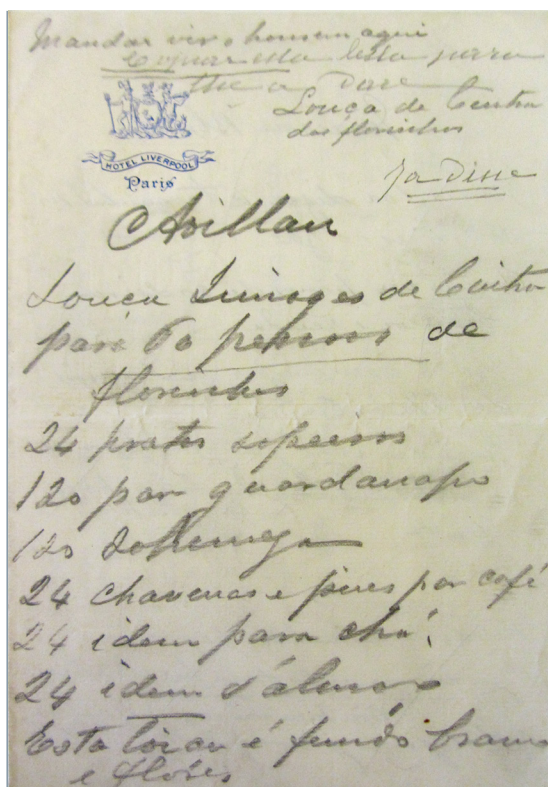 Mandar vir o homem aqui
esta lista para
lhe a dar
Louça de Cintra
dos florinhos
HOTEL LIVERPOOL
Paris
ja disse
Louça Limoges de Cintra
para 60 pessoas de
florinhos
24 pratos sopeiros
120 par guardanapo
120 sobremesa
24 chavenas e pires par café
24 idem para chá
24 idem d'almoço
Esta loiça é fundo branco
e flôres